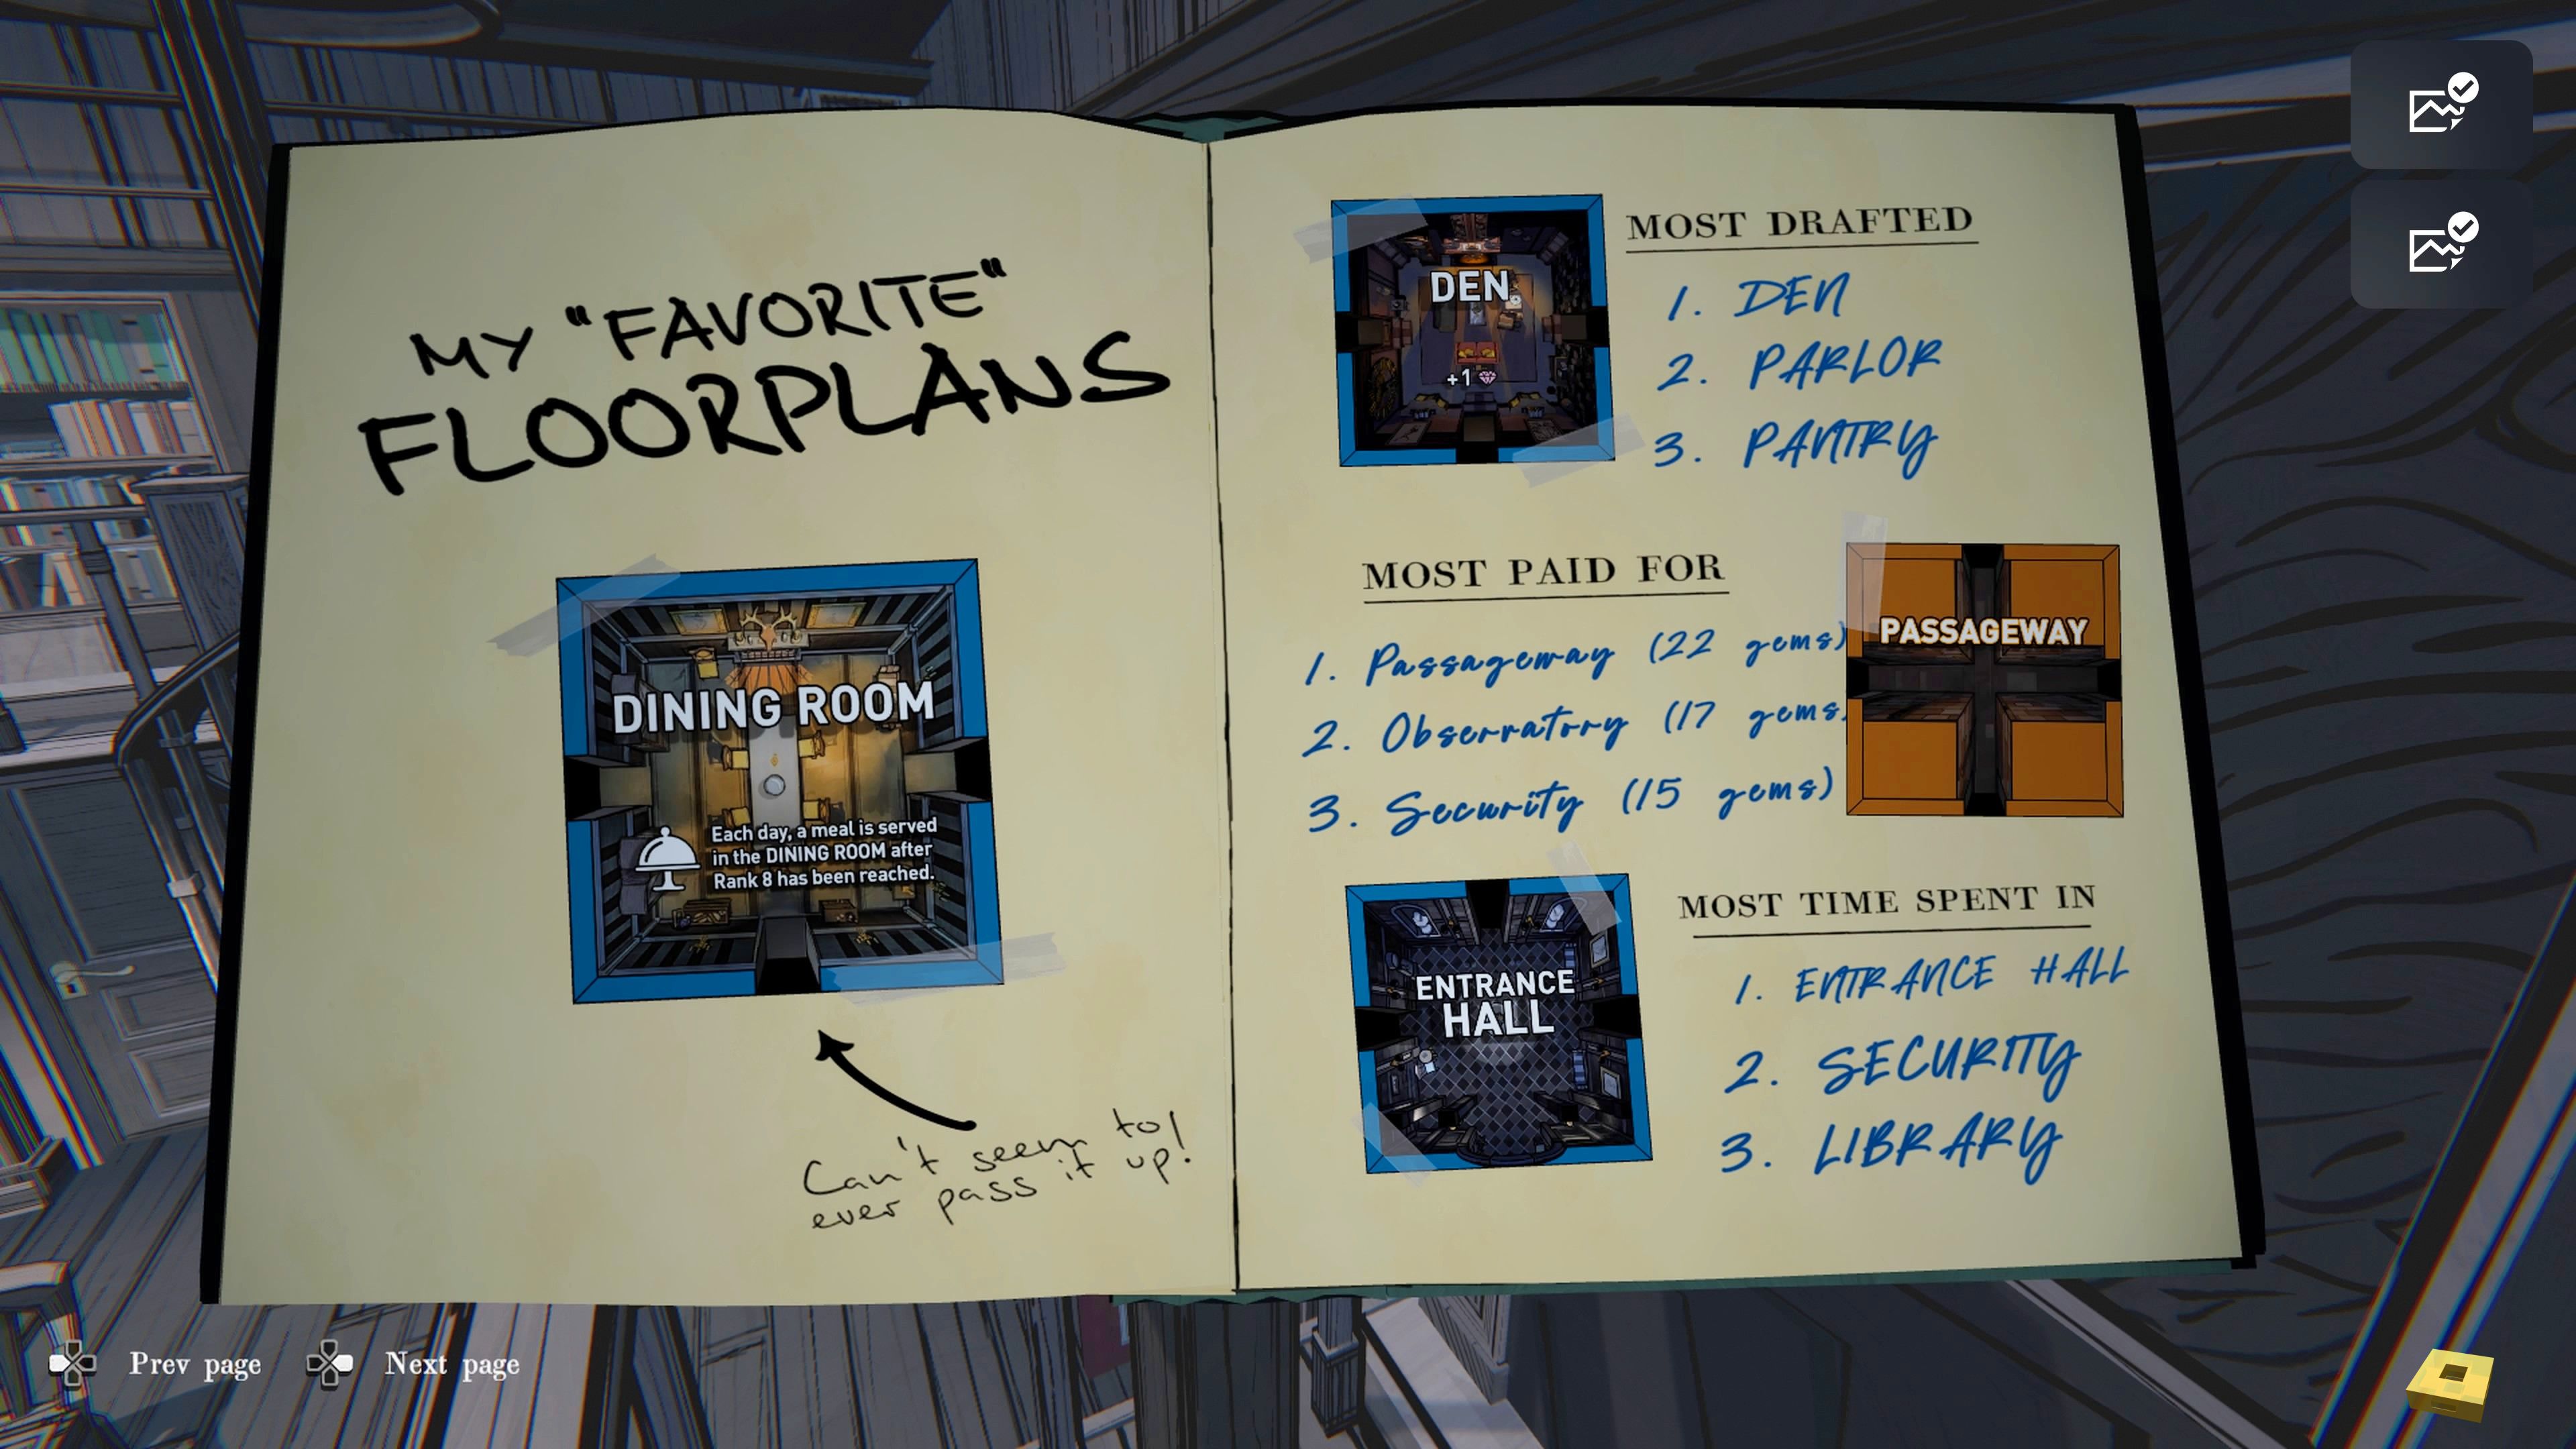 MY "FAVORITE"
FLOORPLANS
DINING ROOM
Each day, a meal is served
in the DINING ROOM after
Rank 8 has been reached.
Can't seem to
ever pass it up!
DEN
+1
MOST DRAFTED
1. DEN
2. PARLOR
3. PANTRY
MOST PAID FOR
1. Passageway (22 gems)
2. Observatory (17 gems
3. Security (15 gems)
PASSAGEWAY
ENTRANCE
HALL
MOST TIME SPENT IN
1. ENTRANCE HALL
2. SECURITY
3. LIBRARY
Prev page
Next page